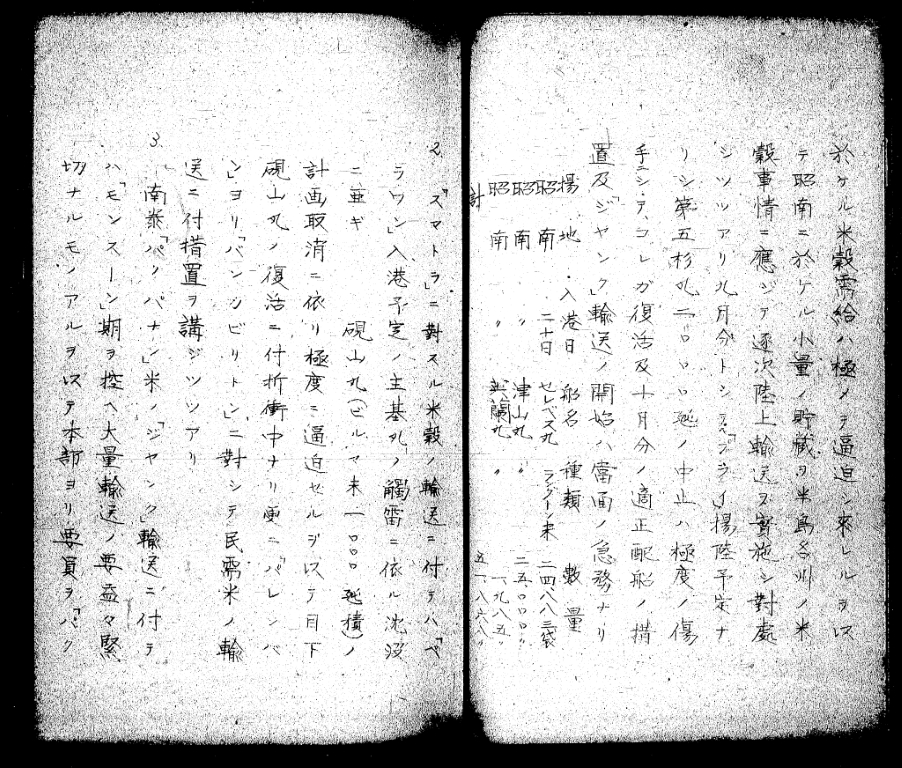 於ケル米穀需給ハ極メテ逼迫シ來レルヲ以
テ昭南ニ於ケル小量ノ貯蔵ヲ半島各州ノ米
穀事情ニ應ジテ逐次陸上輸送ヲ實施シ對處
シツツアリ九月分トシテ「プライ」揚陸予定ナ
リシ第五杉丸二〇〇〇瓲ノ中止ハ極度ノ傷
手ニシテ、コレガ復活及十月分ノ適正配船ノ措
置及「ジヤンク」輸送ノ開始ハ當面ノ急務ナリ
揚地 入港日 船名 種類 數量
昭南 二十日 セレベス丸 ラングーン米 二四八八三袋
昭南 〃 津山丸 〃 二五〇〇〇〃
昭南 〃 〃 一九八五〃
計 五一八六八〃
2 「スマトラ」ニ對スル米穀ノ輸送ニ付テハ「ベ
ラワン」入港予定ノ主基丸ノ觸雷ニ依ル沈没
ニ亜ギ 硯山丸(ビルマ米一〇〇〇瓲積)ノ
計画取消ニ依リ極度ニ逼迫セルヲ以テ目下
硯山丸ノ復活ニ付折衝中ナリ更ニ「パレンバ
ン」ヨリ「バンシビリトン」ニ對シテ民需米ノ輸
送ニ付措置ヲ講ジツツアリ
3 南泰「パクパナン」米ノ「ジヤンク」輸送ニ付テ
ハ「モンスーン」期ヲ控ヘ大量輸送ノ要益々緊
切ナルモノアルヲ以テ本部ヨリ要員ヲ「パク